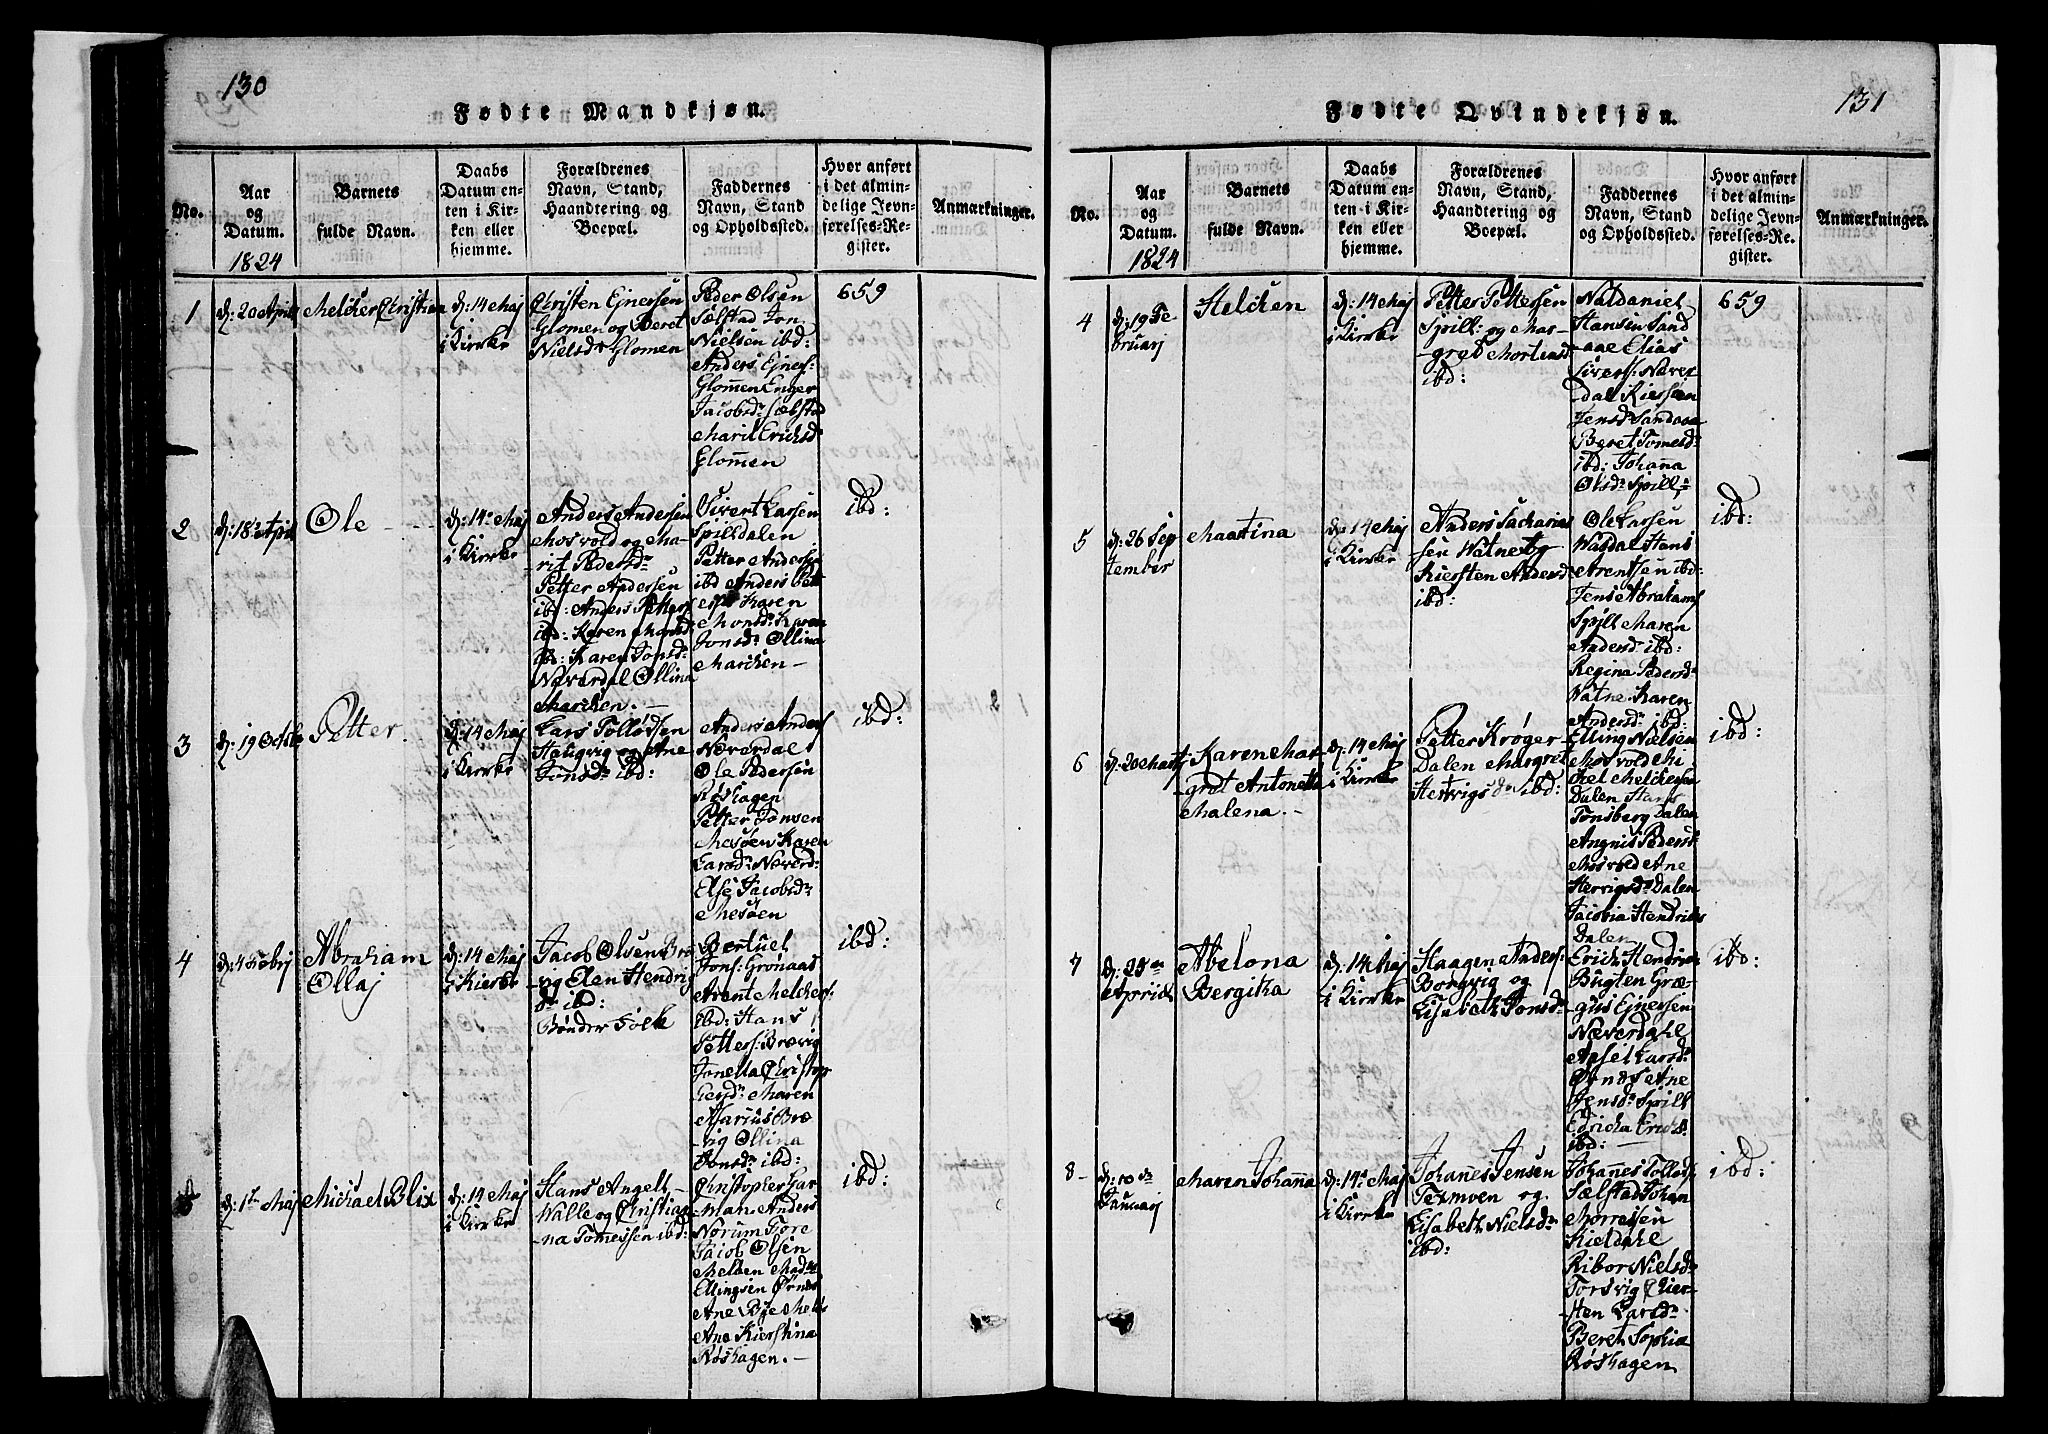 130
Fødte Mandkjøn.
No.
Aar
og
Datum.
1824
Barnets
fulde Navn.
Daabs
Datum en-
ten i Kir-
ken eller
hjemme.
Forældrenes
Navn, Stand,
Haandtering og
Boepæl.
Faddernes
Navn, Stand
og Opholdssted.
Hvor anført
i det almin-
delige Jevn-
førelses-Re-
gister.
Anmærkninger.
1
d: 20 April
Melcher Christian
d: 14 Maj
i Kirske
Christen Ejnersen
Glomen og Beret
Nielsdr Glomen
Peder Olsen
Sælstad Jon
Nielsen ibd:
Anders Ejners:
Glomen Enger
Jacobsdr Sælstad
Marit Erichsdr
Glomen
659
2
d: 18 April
Ole
d: 14 Maj
i Kirke
Anders Andersen
Mosvold og Ma-
rit Pedersdr
Petter Andersen
ibd: Anders Petters
ibd: Karen Monsd
ibd: Karen Jonsdr
Næverdal Ollina
Marchen. —
Sivert Larsen
Spilldalen
Petter Anders
ibd Anders Pett
ers Karen
Monsdr Karen
Jonsdr Ollina
Marchen —
ibd:
3
d: 19 Octob
Petter.
d: 14 Maj
i Kirke
Lars Tollofsen
Haugvig og Ane
Jonsdr ibd:
Anders Anders
Næverdal
Ole Pedersen
Røshagen
Petter Jonsen
Mesøen Karen
Larsdr Næverd:
Else Jacobsdr
Mesøen
ibd:
4
d: 4 Febrj
Abraham
Ollaj
d: 14 Maj
i Kirke
Jacob Olsen Bræ
vig Elen Hendrig
dr ibd:
Bønder Folk
Bertuel
Jons: Grønaas
Arent Melchers:
ibd: Hans
Petters: Brævig
Jonella Christop
hersdr Maren
Marius Bræ
vig Ollina
Jonsdr ibd:
ibd:
d: 1te Maj
Michael Blix
d: 14 Maj
i Kirke
Hans Angell
Walle og Christia
na Tomessen ibd:
Christopher Gar
man Anders
Norum Tore
Jacob Olsen
Melben Mads
Ellingsen Ørnes
Ane Bye Mels
Ane Kierstina
Røshagen. —
ibd:
131
Fødte Qvindekjøn.
No.
Aar
og
Datum.
1824
Barnets
fulde Navn.
Daabs
Datum en-
ten i Kir-
ken eller
hjemme.
Forældrenes
Navn, Stand,
Haandtering og
Boepæl.
Faddernes
Navn, Stand
og Opholdssted.
Hvor anført
i det almin-
delige Jevn-
førelses-Re-
gister.
Anmærkninger.
4
d: 19 Fe
bruarj
Helchen
d: 14 Maj
i Kirke
Petter Pettersen
Spill: og Mar-
gret Mortensd
ibd:
Naldaniel
Hansen Sand
aae Elias
Sivers: Næver
dal Kiersten
Jensdr Sandaae
Beret Tomesdr
ibd: Johana
Olsdr Spill:
659
5
d: 26 Sep
tember
Maartina
d: 14 Maj
i Kirke
Anders Sacharias
sen Watne og
Kiersten Andersd
ibd:
Ole Larsen
Wasdal Hans
Arentsen ibd:
Jens Abrahams
Spill Maren
Andersd ibd:
Regina Pedersd
Watne Karen
Andersdr ibd:
ibd:
6
d: 20 Marts
Karen Mar
gret Antonetta
Malena. —
d: 14 Maj
i Kirke
Petter Krøger
Dalen Margret
Hertvigs dr ibd:
Elling Nielsen
Mosvold Mi
chel Melchersen
Dalen Hans
Tonsberg Dalen
Angnis Pedersd
Mosvold Ane
Hervigsdr Dalen
Jacobia Hendrichs
Dalen
ibd:
7
d: 25 de
April
Abelona
Bergitha
d: 14 Maj
i Kirke
Haagen Anders:
Borgvig og
Elisabeth Jonsdr
Erich Hendrich
Bugten Græ-
gus Ejnersen
Næverdahl
Apsel Larsdr
Ørnæs Ane
Jensdr Spill
Edricka Erichs
ibd:
ibd:
8 —
d: 10 de
Januarj
Maren Johanna
d: 14 Maj
i Kirke
Johannes Jensen
Termoen og
Elsabeth Nielsdr
ibd:
Johannes Tollofs
Sælstad Johan
Morresen
Kieldahl
Ribor Nielsdr
Torsvig Kiers-
ten Larsdr
Beret Sophia
Røshagen
ibd: